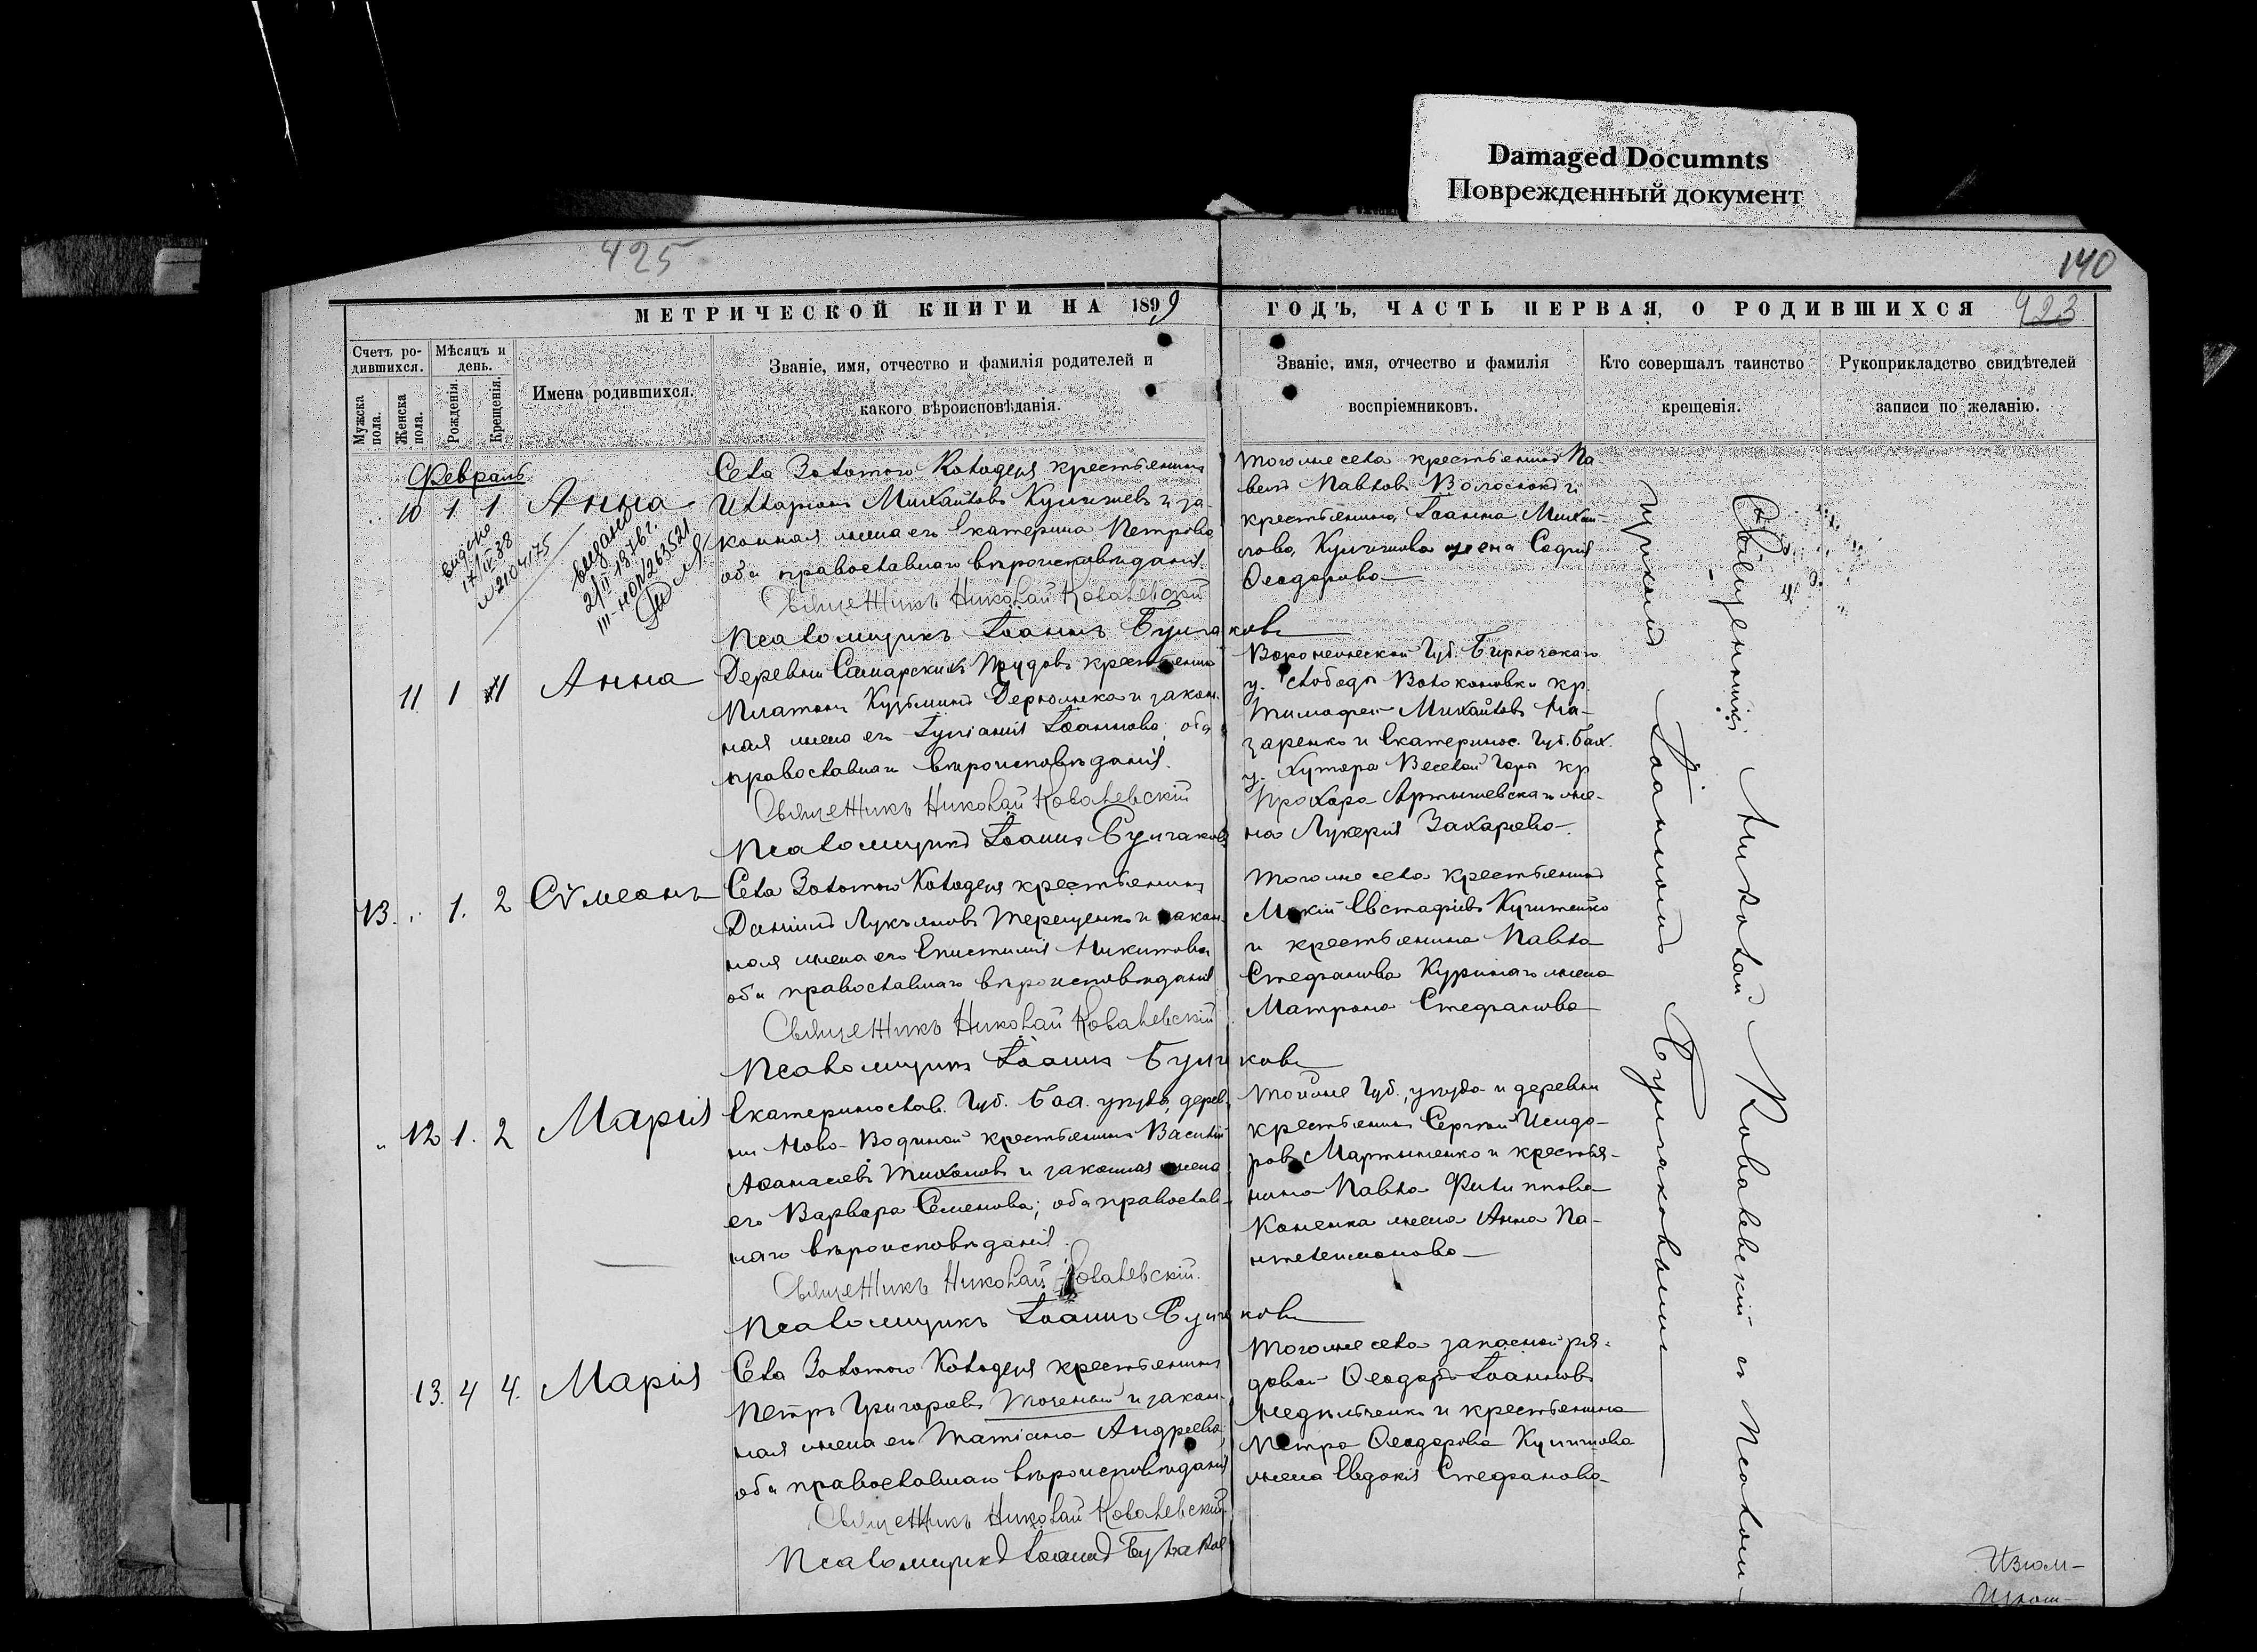 Damaged Documnts
Поврежденный документ
425
140
МЕТРИЧЕСКОЙ КНИГИ НА 1899
ГОДЪ, ЧАСТЬ ПЕРВАЯ, О РОДИВШИХСЯ
423
Счетъ ро-
дившихся.
Мужска
пола.
Женска
пола.
Мѣсяцъ и
день.
Рожденія.
Крещенія.
Имена родившихся.
Званіе, имя, отчество и фамилія родителей и
какого вѣроисповѣданія.
Званіе, имя, отчество и фамилія
воспріемниковъ.
Кто совершалъ таинство
крещенія.
Рукоприкладство свидѣтелей
записи по желанію.
Февраль
10 1 1 Анна
выдано
2/II 1976 г.
Села Золотого Колодезя крестьянинъ
Илларіонъ Михайловъ и за-
конная жена его Екатерина Петрова
оба православнаго вѣроисповѣданія.
Священникъ Николай Ковалевскій
Псаломщикъ Іоаннъ Булгаковъ
тогоже села крестьянинъ Па-
велъ Павловъ и
крестьянина Іоанна Михай-
лова жена Софія
Ѳеодорова
11 1 1 Анна
Деревни Самарскихъ Прудовъ крестьянинъ
Платонъ Кузьминъ и закон-
ная жена его Іуліанія Іоаннова, оба
православнаго вѣроисповѣданія.
Священникъ Николай Ковалевскій
Псаломщикъ Іоаннъ Булгаковъ
Воронежской Губ. Бирючскаго
у. слободы Волоконовки кр.
Тимофей Михайловъ На-
заренко и Екатеринос. Губ. Бах.
у. Хутора Веселой Горы кр
Прохора жe-
на Лукерія Захарова
13. 1. 2 Сѵмеонъ
Села Золотого Колодезя крестьянинъ
Даніилъ Лукьяновъ Терещенко и закон-
ная жена его Епистимія Никитова
оба православнаго вѣроисповѣданія
Священникъ Николай Ковалевскій
Псаломщикъ Іоаннъ Булгаковъ
тогоже села крестьянинъ
Мокій Евстафіевъ
и крестьянина Павла
Стефанова жена
Матрона Стефанова
12 1. 2 Марія
Екатеринослав. Губ. Бах. уѣзда, дерев-
ни Ново-Водяной крестьянинъ Василій
Аѳанасіевъ Тихоновъ и законная жена
его Варвара Семенова; оба православ-
наго вѣроисповѣданія.
Священникъ Николай Ковалевскій.
Псаломщикъ Іоаннъ Булгаковъ
Тойже Губ., уѣзда и деревни
крестьянинъ Сергѣй Исидо-
ровъ Мартыненко и крестья-
нина Павла Филиппова
жена Анна Па-
нтелеимонова
13. 4 4. Марія
Села Золотого Колодезя крестьянинъ
Петръ Григорьевъ Точеный и закон-
ная жена его Татіана Андреева,
оба православнаго вѣроисповѣданія
Священникъ Николай Ковалевскій
Псаломщикъ Іоаннъ Булгаковъ
тогоже села запасной ря-
довой Ѳеодоръ Іоанновъ
и крестьянина
Петра Ѳеодорова
жена Евдокія Стефанова
Священникъ Николай Ковалевскій съ Псалом-
щикомъ Іоанномъ Булгаковымъ
Изюм-